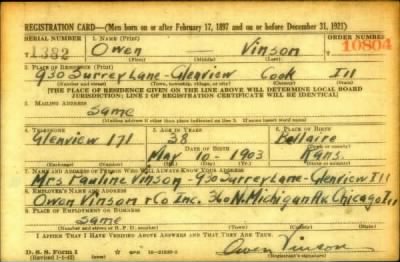 REGISTRATION CARD—(Men born on or after February 17, 1897 and on or before December 31, 1921)
SERIAL NUMBER 1. NAME (Print) ORDER NUMBER
1382 Owen Vinson 10804
(First) (Middle) (Last)
2. PLACE OF RESIDENCE (Print)
930 Surrey Lane-Glenview Cook Ill
(Number and street) (Town, township, village, or city) (County) (State)
[THE PLACE OF RESIDENCE GIVEN ON THE LINE ABOVE WILL DETERMINE LOCAL BOARD
JURISDICTION; LINE 2 OF REGISTRATION CERTIFICATE WILL BE IDENTICAL]
3. MAILING ADDRESS
Same
[Mailing address if other than place indicated on line 2. If same insert word same]
4. TELEPHONE 5. AGE IN YEARS 6. PLACE OF BIRTH
Glenview 171 38 Bellaire
DATE OF BIRTH (Town or county)
May 10-1903 Kans
(Exchange) (Number) (Mo.) (Day) (Yr.) (State or country)
7. NAME AND ADDRESS OF PERSON WHO WILL ALWAYS KNOW YOUR ADDRESS
Mrs Pauline Vinson-930 Surrey Lane-Glenview Ill
8. EMPLOYER'S NAME AND ADDRESS
Owen Vinson + Co Inc. 360 N. Michigan Av. Chicago Ill
9. PLACE OF EMPLOYMENT OR BUSINESS
Same
(Number and street or R. F. D. number) (Town) (County) (State)
I AFFIRM THAT I HAVE VERIFIED ABOVE ANSWERS AND THAT THEY ARE TRUE.
D. S. S. Form 1
(Revised 1-1-42) (over) GPO
Owen Vinson
(Registrant's signature)